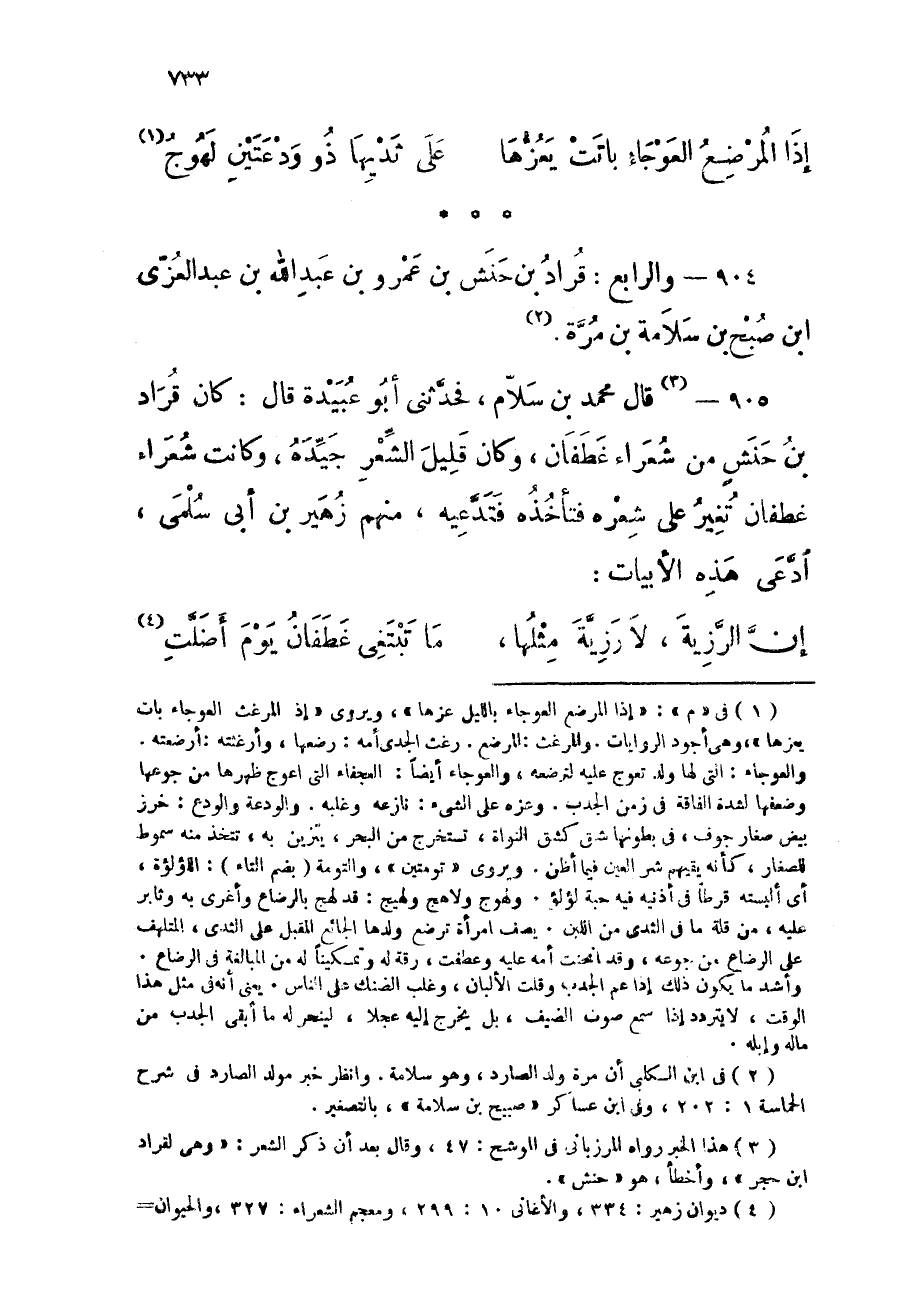 ٧٣٣
إِذَا الْمُرْضِعُ العَوْجَاءِ باتَتْ يَعُزُّهَا عَلَى ثَدْيِهَا ذُو وَدْعَتَيْنِ لَهُوجُ (١)
* * *
٩٠٤ — والرابع : قُرادُ بن حَنَش بن عَمْرو بن عَبدِ الله بن عبد العُزّى
ابن صُبْح بن سَلَامة بن مُرَّة . (٢)
٩٠٥ — (٣) قال محمد بن سَلاّم ، فحدَّثنى أبُو عُبَيْدة قال : كان قُرَاد
بنُ حَنَشٍ من شُعَرَاء غَطَفَان ، وكان قَلِيلَ الشِّعْرِ جَيِّدَهُ ، وكانت شُعَرَاء
غطفان تُغِيرُ على شِعْرِه فتأخُذُه فَتَدَّعِيه ، منهم زُهَير بن أبى سُلْمَى ،
اُدَّعَى هَذِه الأبيات :
إنَّ الرَّزِيةَ ، لاَ رَزِيَّةَ مِثْلُهَا ، مَا تَبْتَغِى غَطَفَانُ يَوْمَ أَضَلَّتِ (٤)
( ١ ) فى « م » : « إذا المرضع العوجاء بالليل عزها » ، ويروى « إذ المرغث العوجاء بات
يعزها » ، وهى أجود الروايات . والمرغث : المرضع . رغث الجدى أمه : رضعها ، وأرغثته : أرضعته .
والعوجاء : التى لها ولد تعوج عليه لترضعه ، والعوجاء أيضاً : العجفاء التى اعوج ظهرها من جوعها
وضعفها لشدة الفاقة فى زمن الجدب . وعزه على الشىء : نازعه وغلبه . والودعة والودع : خرز
بيض صغار جوف ، فى بطونها شق كشق النواة ، تستخرج من البحر ، يتزين به ، تتخذ منه سموط
للصغار ، كأنه يقيهم شر العين فيما أظن . ويروى « تومتين » ، والتومة ( بضم التاء ) : اللؤلؤة ،
أى ألبسته قرطاً فى أذنيه فيه حبة لؤلؤ . ولهوج ولاهج ولهيج : قد لهج بالرضاع وأغرى به وثابر
عليه ، من قلة ما فى الثدى من اللبن . يصف امرأة ترضع ولدها الجائع المقبل على الثدى ، المتلهف
على الرضاع من جوعه ، وقد انحنت أمه عليه وعطفت ، رقة له وتمكيناً له من المبالغة فى الرضاع .
وأشد ما يكون ذلك إذا عم الجدب وقلت الألبان ، وغلب الضنك على الناس . يعنى أنه فى مثل هذا
الوقت ، لا يتردد إذا سمع صوت الضيف ، بل يخرج إليه عجلا ، لينحر له ما أبقى الجدب من
ماله وإبله .
( ٢ ) فى ابن الكلبى أن مرة ولد الصارد ، وهو سلامة . وانظر خبر مولد الصارد فى شرح
الحماسة ١ : ٢٠٢ ، وفى ابن عساكر « صبيح بن سلامة » ، بالتصغير .
( ٣ ) هذا الخبر رواه المرزبانى فى الموشح : ٤٧ ، وقال بعد أن ذكر الشعر : « وهى لقراد
ابن حجر » ، وأخطأ ، هو « حنش » .
( ٤ ) ديوان زهير : ٣٣٤ ، والأغانى ١٠ : ٢٩٩ ، ومعجم الشعراء : ٣٢٧ ، والحيوان =